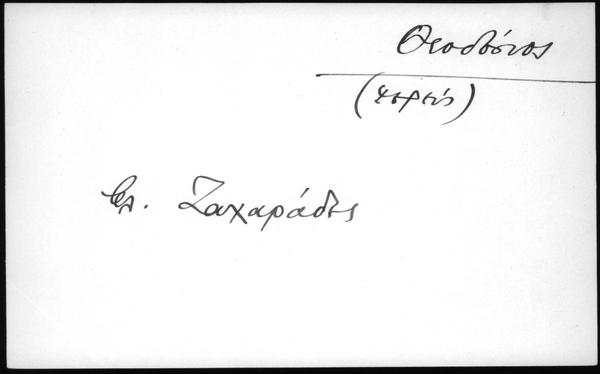 Θεοδόσιος
(ιερεύς)
Ζαχαράδης